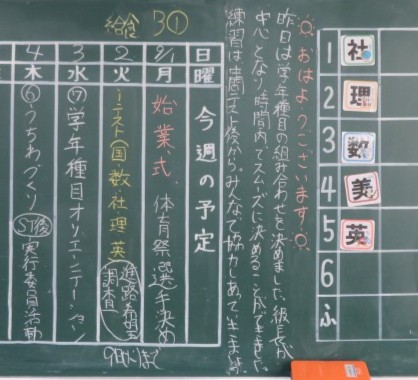 1 社
2 理
3 数
4 美
5 英
6
ふ
おはようございます!
昨日は学年種目の組み合わせを決めました。級長が
中心となり時間内でスムーズに決めることができました。
練習は中間テスト後から。みんなで協力しあっていきます。
給食 30①
今週の予定
日 曜
9/1 月 始業式 体育祭選手決め
2 火 テスト(国数社理英) 進路希望調査
3 水 ⑦学年種目オリエンテーション
4 木 ⑥うちわづくり ST後 実行委員活動